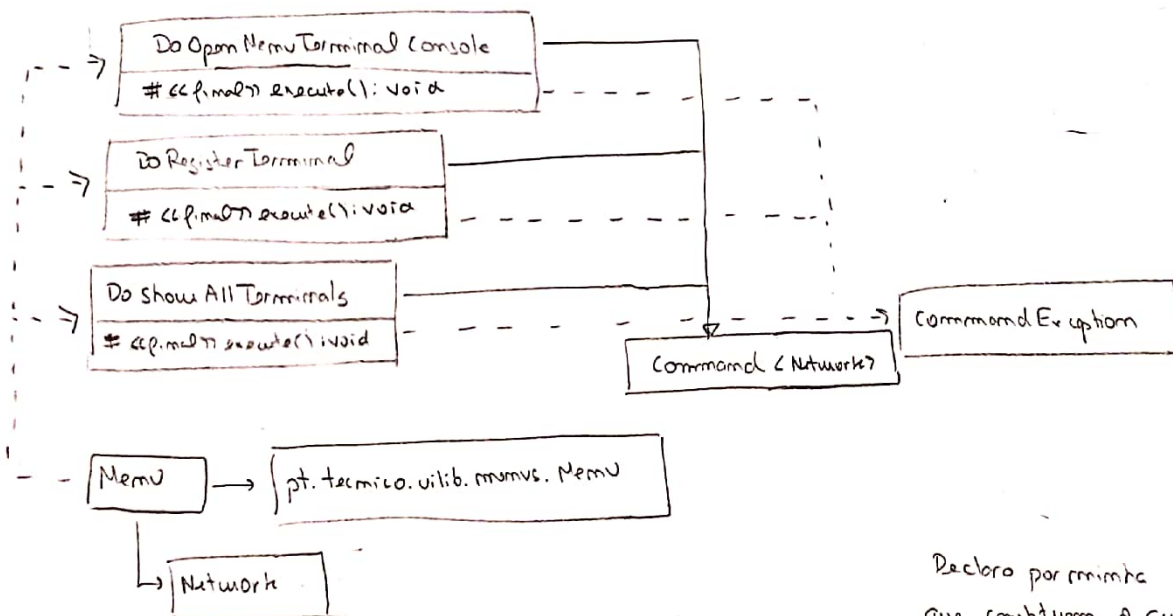 Do Open Menu Terminal Console
# <<final>> execute(): void
Do Register Terminal
# <<final>> execute(): void
Do Show All Terminals
# <<final>> execute(): void
Command Exception
Command <Network>
Menu
pt.tecnico.uilib.menus.Menu
Network
Declaro por minha
que